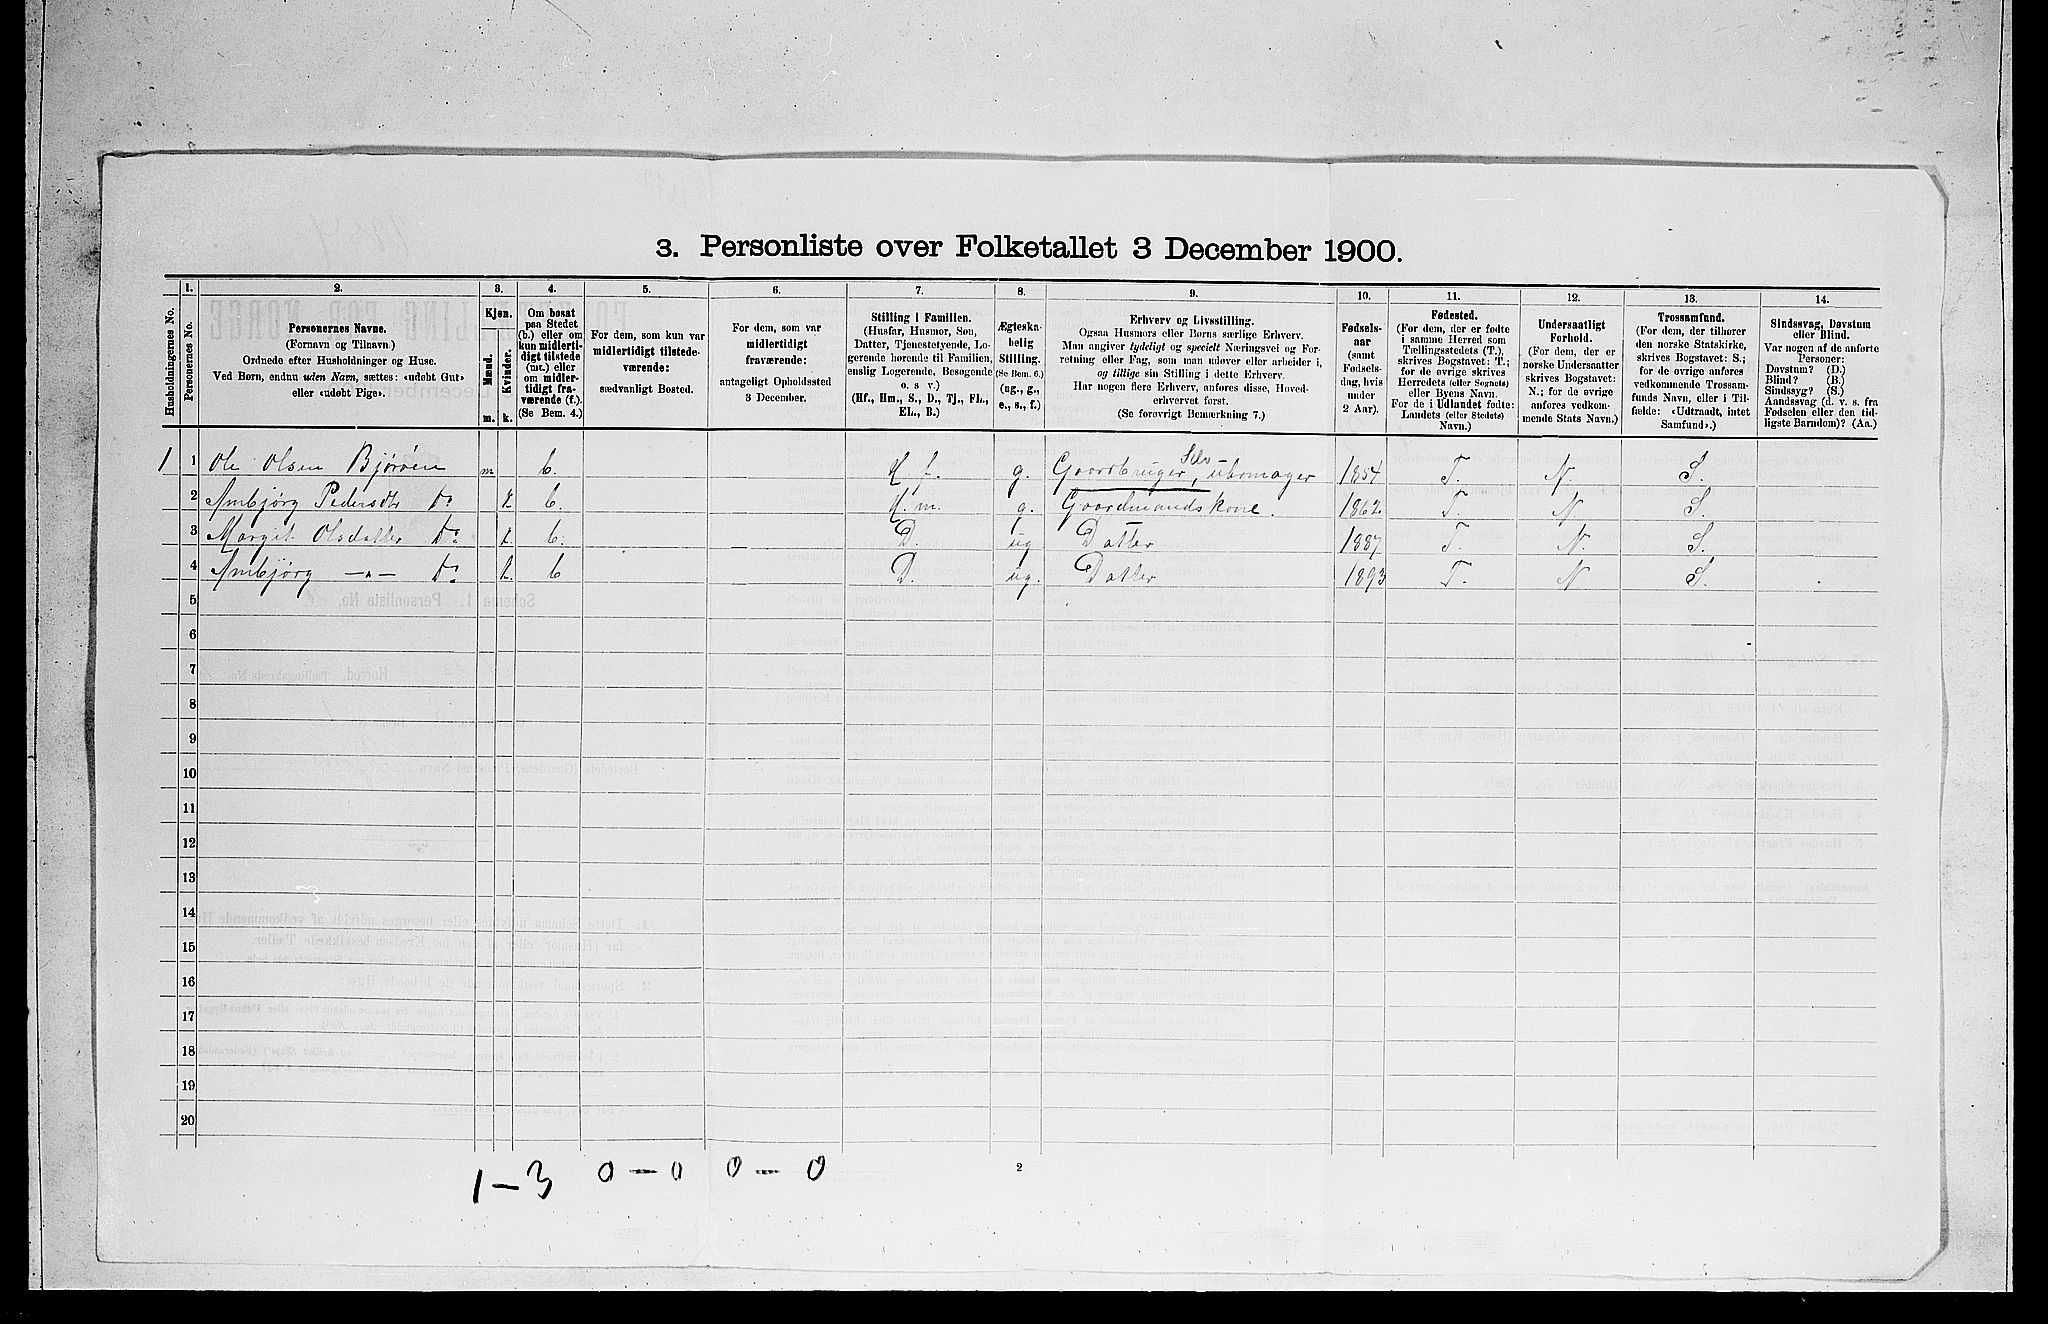 3. Personliste over Folketallet 3 December 1900.
Husholdningernes No.
1.
Personernes No.
2.
Personernes Navne.
(Fornavn og Tilnavn.)
Ordnede efter Husholdninger og Huse.
Ved Børn, endnu uden Navn, sættes: «udøbt Gut»
eller «udøbt Pige».
3.
Kjøn.
Mænd.
Kvinder.
m. k.
4.
Om bosat
paa Stedet
(b.) eller om
kun midlerti-
digt tilstede
(mt.) eller
om midler-
tidigt fra-
værende (f.).
(Se Bem. 4.)
5.
For dem, som kun var
midlertidigt tilstede-
værende:
sædvanligt Bosted.
6.
For dem, som var
midlertidigt
fraværende:
antageligt Opholdssted
3 December.
7.
Stilling i Familien.
(Husfar, Husmor, Søn,
Datter, Tjenestetyende, Lo-
gerende hørende til Familien,
enslig Logerende, Besøgende
o. s v.)
(Hf., Hm., S., D., Tj., FL.,
EL., B.)
8.
Ægteska-
belig
Stilling.
(Se Bem. 6.)
(ug., g.,
e., s., f.)
9.
Erhverv og Livsstilling.
Ogsaa Husmors eller Børns særlige Erhverv.
Man angiver tydeligt og specielt Næringsvei og For-
retning eller Fag, som man udøver eller arbeider i,
og tillige sin Stilling i dette Erhverv.
Har nogen flere Erhverv, anføres disse, Hoved-
erhvervet først.
(Se forøvrigt Bemærkning 7.)
10.
Fødsels-
aar
(samt
Fødsels-
dag, hvis
under
2 Aar).
11.
Fødested.
(For dem, der er fødte
i samme Herred som
Tællingsstedets (T.),
skrives Bogstavet: T.;
for de øvrige skrives
Herredets (eller Sognets)
eller Byens Navn.
For de i Udlandet fødte:
Landets (eller Stedets)
Navn.)
12.
Undersaatligt
Forhold.
(For dem, der er
norske Undersaatter
skrives Bogstavet:
N.; for de øvrige
anføres vedkom-
mende Stats Navn.)
13.
Trossamfund.
(For dem, der tilhører
den norske Statskirke,
skrives Bogstavet: S.;
for de øvrige anføres
vedkommende Trossam-
funds Navn, eller i Til-
fælde: «Udtraadt, intet
Samfund».)
14.
Sindssvag, Døvstum
eller Blind.
Var nogen af de anførte
Personer:
Døvstum? (D.)
Blind? (B.)
Sindssyg? (S.)
Aandssvag (d. v. s. fra
Fødselen eller den tid-
ligste Barndom)? (Aa.)
1 1 Ole Olsen Bjørøen m b. H f. g. Gaardbruger, Selv uhrmager 1854 T. N. S.
2 Ambjørg Pedersdtr Do k b. H. m. g. Gaardmandskone. 1862 T. N S.
3 Margit Olsdatter Do k. b. D. ug Datter 1887 T. N. S.
4 Ambjørg —"— Do k. b D. ug. Datter 1893 T. N S.
5
6
7
8
9
10
11
12
13
14
15
16
17
18
19
20
1 – 3 0 – 0 0 – 0
2